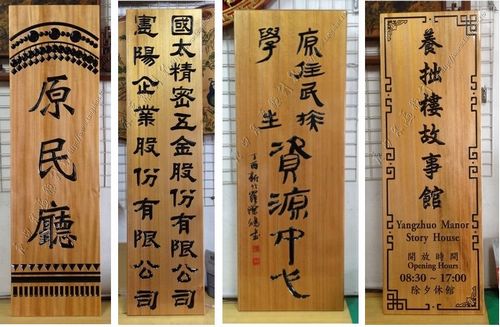 原民廳
國太精密五金股份有限公司
憲陽企業股份有限公司
原住民族
學生
資源中心
養拙樓故事館
Yangzhuo Manor
Story House
開放時間
Opening Hours
08:30 ~ 17:00
除夕休館